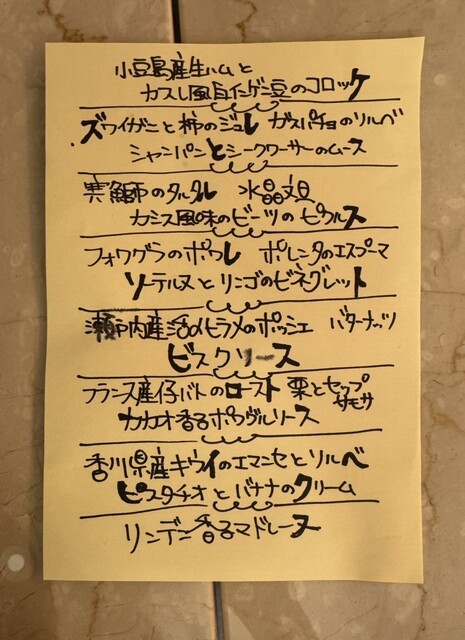 小豆島産生ハムと
カスレ風白インゲン豆のコロッケ
ズワイガニと柿のジュレ ガスパチョのソルベ
シャンパンとシークワーサーのムース
寒鰤のタルタル 水晶文旦
カシス風味のビーツのピクルス
フォワグラのポワレ ポレンタのエスプーマ
ソーテルヌとリンゴのビネグレット
瀬戸内産活〆ヒラメのポッシェ バターナッツ
ビスクソース
フランス産仔バトのロースト 栗とセップ
サモサ
カカオ香るポワヴルソース
香川県産キウイのエマンセとソルベ
ピスタチオとバナナのクリーム
リンデン香るマドレーヌ